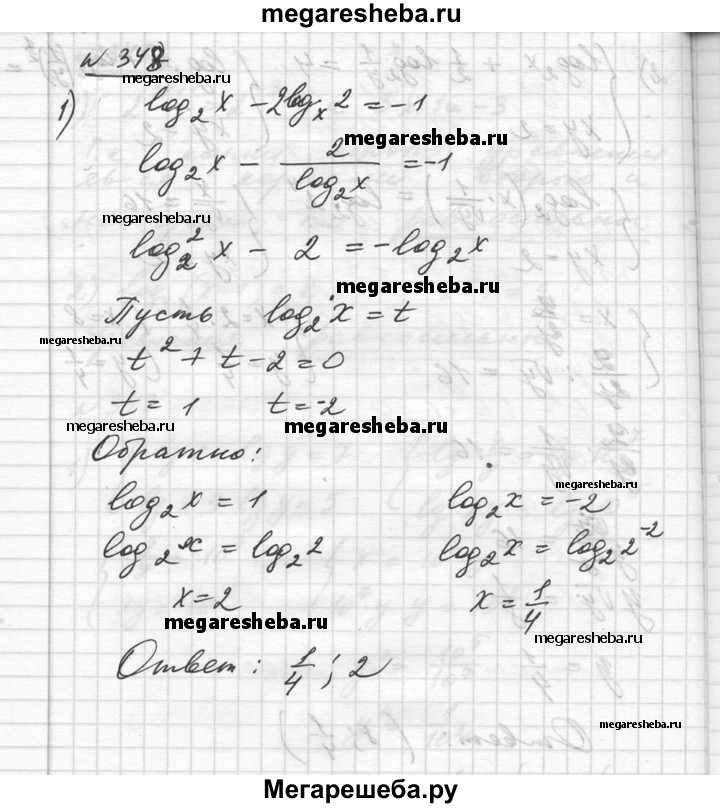 megaresheba.ru
№ 348
megaresheba.ru
1) log₂x - 2logₓ2 = -1
megaresheba.ru
log₂x - 2/log₂x = -1
megaresheba.ru
log₂²x - 2 = -log₂x
megaresheba.ru
Пусть log₂x = t
megaresheba.ru
t² + t - 2 = 0
t = 1 t = -2
megaresheba.ru megaresheba.ru
Обратно:
megaresheba.ru
log₂x = 1 log₂x = -2
log₂x = log₂2 log₂x = log₂2⁻²
x = 2 x = 1/4
megaresheba.ru
megaresheba.ru
Ответ: 1/4; 2
megaresheba.ru
Мегарешеба.ру